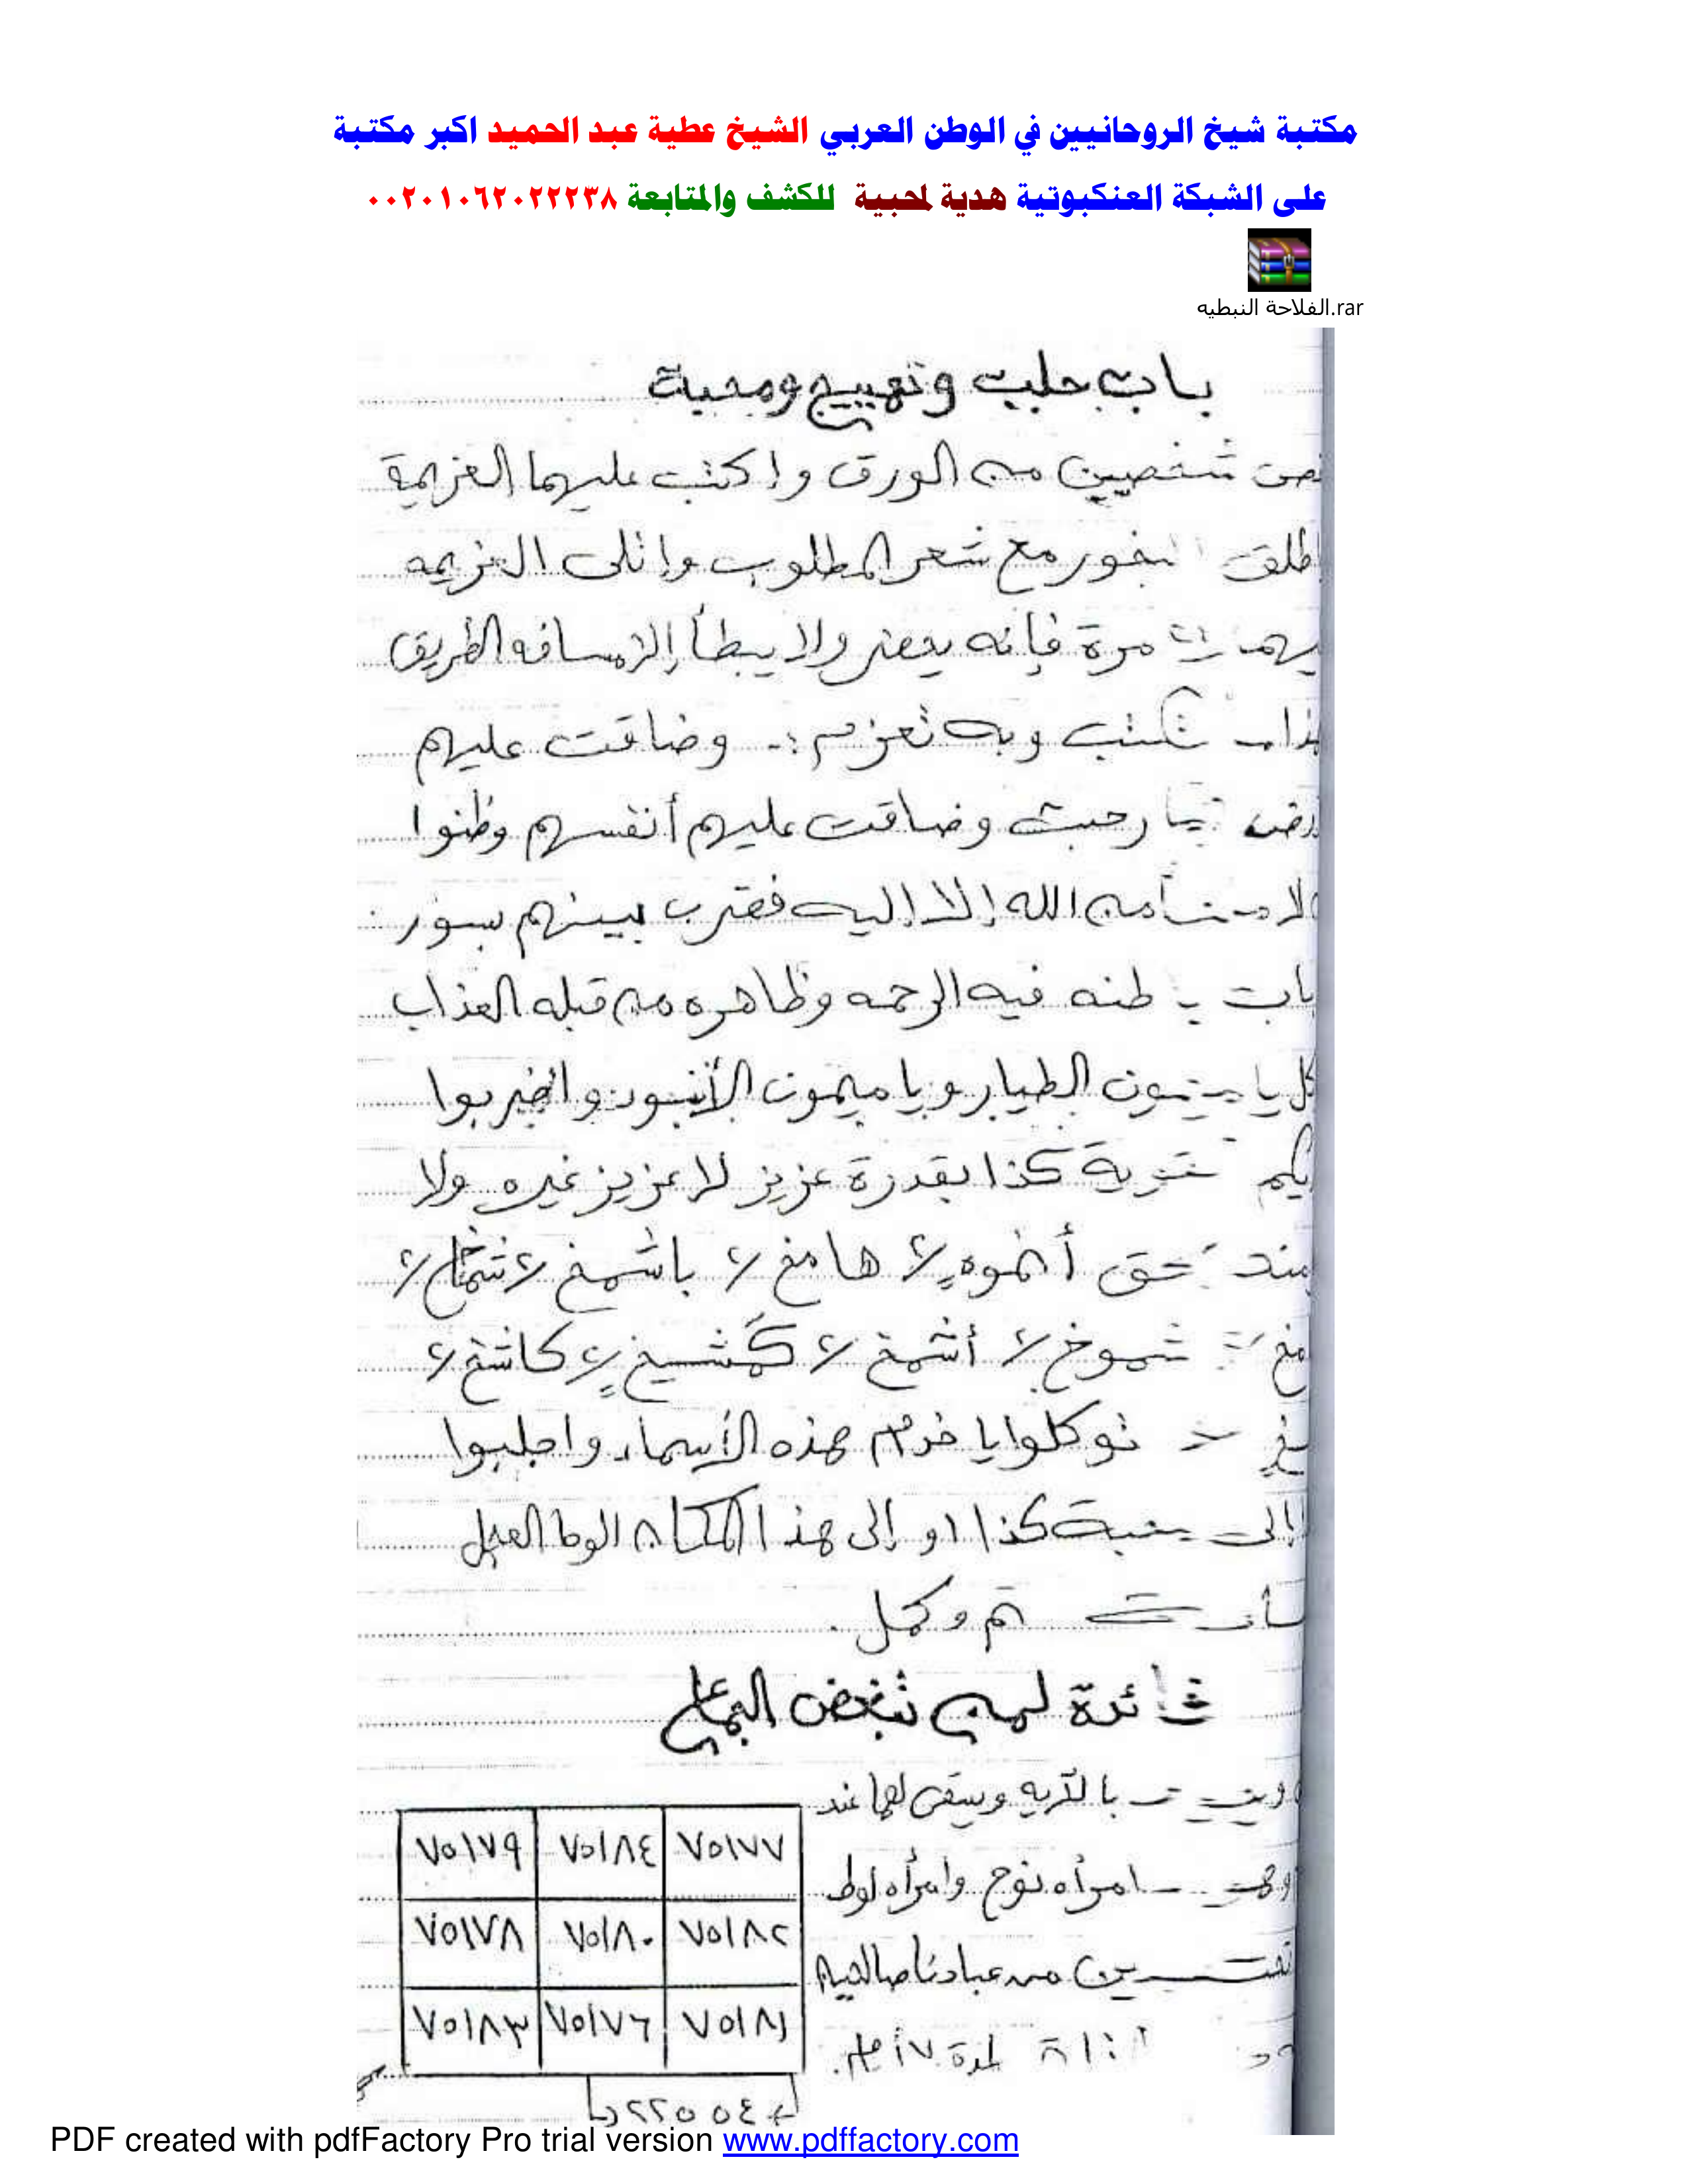 مكتبة شيخ الروحانيين في الوطن العربي الشيخ عطية عبد الحميد اكبر مكتبة
على الشبكة العنكبوتية هدية لمحبية للكشف والمتابعة ٠٠٢٠١٠٦٢٠٢٢٢٣٨
الفلاحة النبطيه.rar
باب جلب وتهييج ومحبة
قص شخصيين من الورق وإكتب عليهما العزيمة
إطلق البخور مع شعر المطلوب وإتلى العزيمه
مرة فإنه يحضر ولا يبطأ إلا مسافه الطريق
تكتب وبه تعزم :- وضاقت عليهم
رحبت وضاقت عليهم أنفسهم وظنوا
من الله إلا إليه فضرب بينهم بسور
باب باطنه فيه الرحمه وظاهره من قبله العذاب
يا ميمون الطيار ويا ميمون الأسود واضربوا
كذا بقدرة عزيز لا عزيز غيره ولا
بحق أهموه ٢ هامخ ٢ باشمخ ٢ شماخ ٢
شموخ ٢ أشمخ ٢ كمشيخ ٢ كاشخ ٢
توكلوا يا خدام هذه الأسماء واجلبوا
إلى محبة كذا او إلى هذا المكان الوحا العجل
تم وكمل .
فائدة لمن تبغض الجماع
وبسقى لهما عند
امرأه نوح وامرأه لوط
من عبادنا صالحين
لمدة ٧ أيام.
٧٥١٧٩ ٧٥١٨٤ ٧٥١٧٧
٧٥١٧٨ ٧٥١٨٠ ٧٥١٨٢
٧٥١٨٣ ٧٥١٧٦ ٧٥١٨١
PDF created with pdfFactory Pro trial version www.pdffactory.com